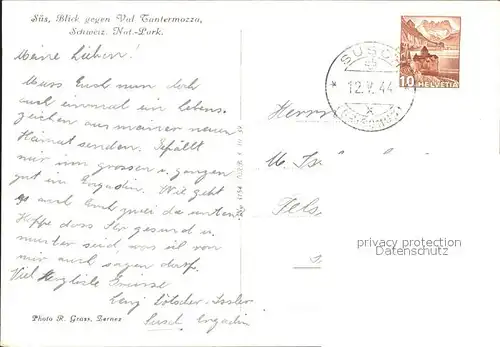 Süs, Blick gegen Val Tantermozza,
Schweiz. Nat.-Park.
Meine Lieben!
Muss Euch nun doch
auch einmal ein Lebens-
zeichen aus meiner neuen
Heimat senden. Gefällt
mir im grossen u. ganzen
gut im Engadin. Wie geht
es auch Euch zwei da unten
Hoffe dass Ihr gesund u.
munter seid, was ich von
mir auch sagen darf.
Viel herzliche Grüsse
Lötscher-
Susch Engadin
Photo R. Grass, Zernez
SUSCH
12.V.44
10 HELVETIA
Herrn
privacy protection
Datenschutz